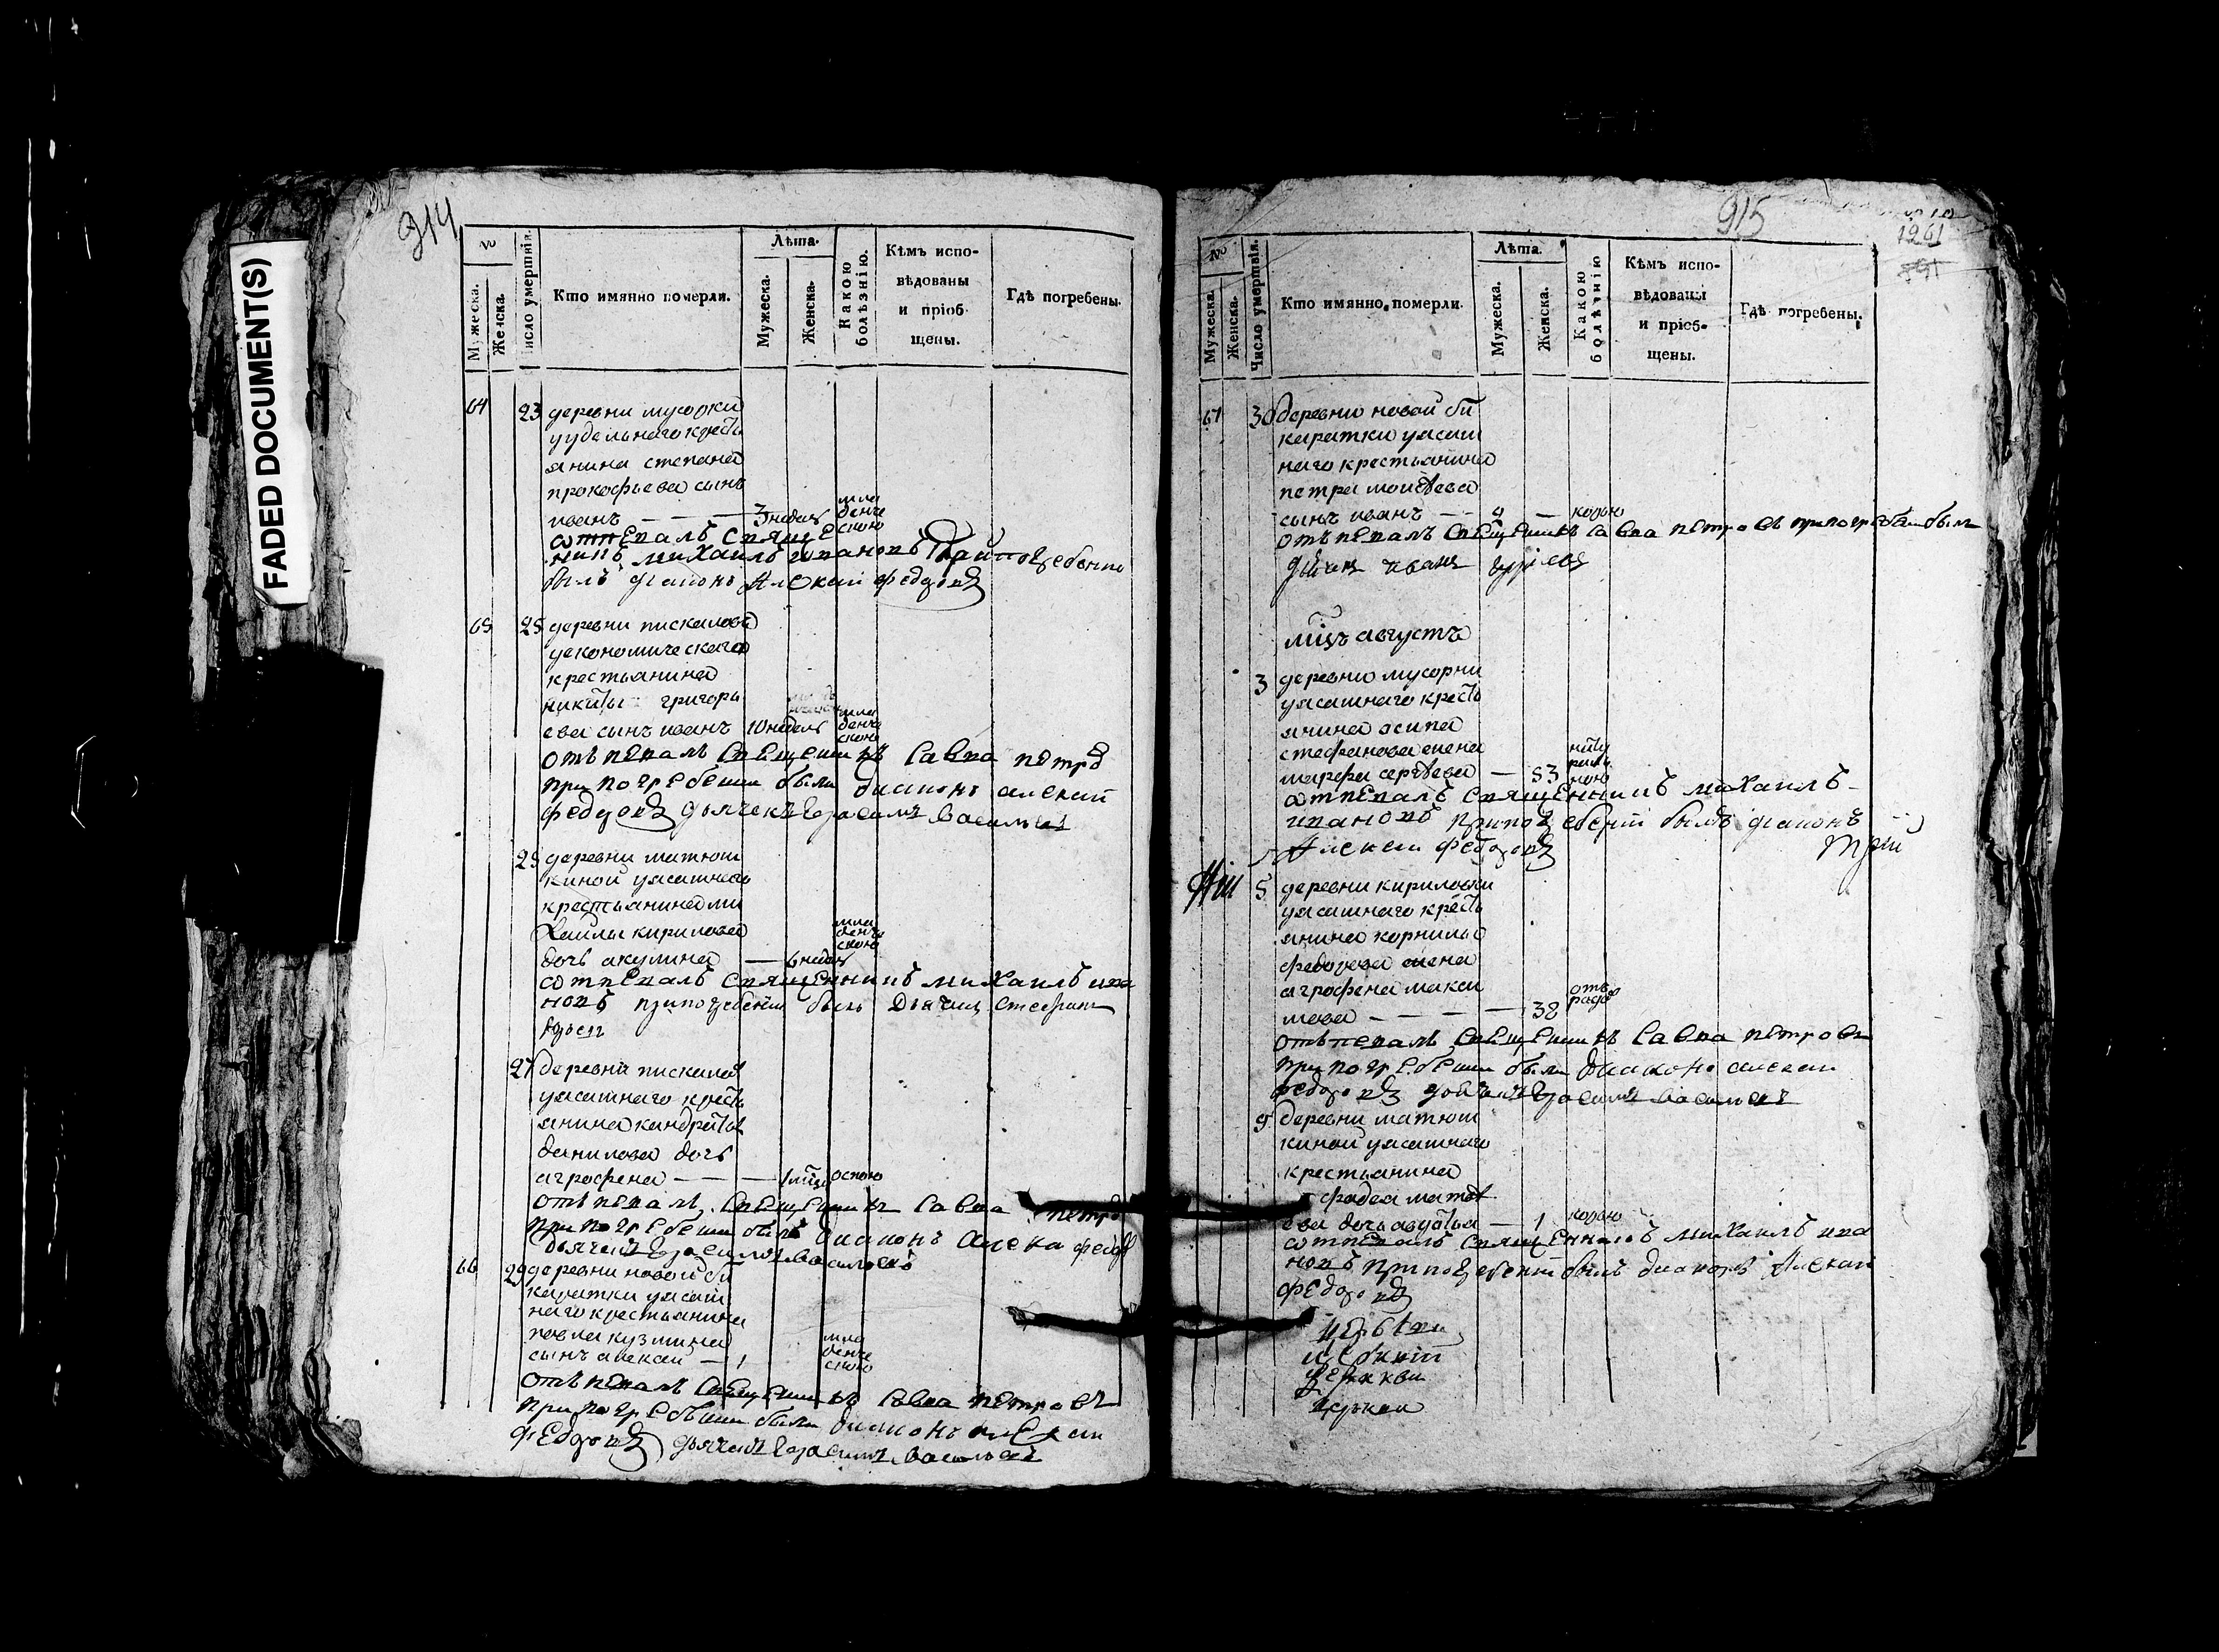 FADED DOCUMENT(S)
914
№
Мужеска.
Женска.
Число умертвія.
Кто имянно померли.
Лѣта.
Мужеска.
Женска.
Какою болѣзнію.
Кѣмъ испо-
вѣдованы
и пріоб-
щены.
Гдѣ погребены.
64 23 деревни мусорки
уудельнаго кресть
янина степана
прокофьева сынъ
иванъ — — 3 недель мла
денче
скою
отпевалъ священ
никъ михаилъ ивановъ при погребении
былъ диаконъ Алексий федоров
65 25 деревни пискалова
уекономическаго
крестьянина
никиты григорь
ева сынъ иванъ 10 недель мла
денче
скою
отъпевалъ Священикъ Савва петров
при погребении были диаконъ алексий
федоров дьячекъ Герасимъ Васильев
25 деревни матюш
киной уясашнаго
крестьянина ми
хаилы кирилова
дочь акулина — 6 недель мла
денче
скою
отпевалъ священникъ михаилъ ива
новъ при погребении былъ дьячик стефан
27 деревни пискалов
уясашнаго кресть
янина кандрать
данилова дочь
агрофена — — — 1 мцъ оспою
отъпевалъ Священикъ Савва петров
при погребении былъ диаконъ Алексе федоров
дьячекъ Герасимъ Васильевъ
66 29 деревни новой би
наратки уясаш
наго крестьянина
павла кузмина
сынъ алексей — 1 мла
денче
скою
отъпевалъ Священикъ Савва петровъ
при погребении были диаконъ алексеи
федоров дьячекъ Герасимъ Васильевъ
915
1261
891
№
Мужеска.
Женска.
Число умертвія.
Кто имянно померли.
Лѣта.
Мужеска.
Женска.
Какою болѣзнію
Кѣмъ испо-
вѣдованы
и пріоб-
щены.
Гдѣ погребены.
67 30 деревни новой би
наратки уясаш
наго крестьянина
петра моисеева
сынъ иванъ — — корью
отъпевалъ Священикъ Савва петровъ при погребении былъ
дьячик иванъ
мцъ августъ
3 деревни мусорки
уясашнаго кресть
янина осипа
стефанова жена
марфа сергеева — 53
отпевалъ священникъ михаилъ
ивановъ при погребении былъ диаконъ
Алексеи федоров
5 деревни кириловки
уясашнаго кресть
янина корнилы
федорова жена
агрофена макси
мова — — — — 38 отъ
родов
отъпевалъ Священикъ Савва петровъ
при погребении были диаконъ алексеи
федоров дьячекъ Герасимъ Васильевъ
9 деревни матюш
киной уясашнаго
крестьянина
фадея матве
ева дочь авдотья — 1 корью
отпевалъ священникъ михаилъ ива
новъ при погребении былъ диаконъ Алексеи
федоров
церкви
церкви